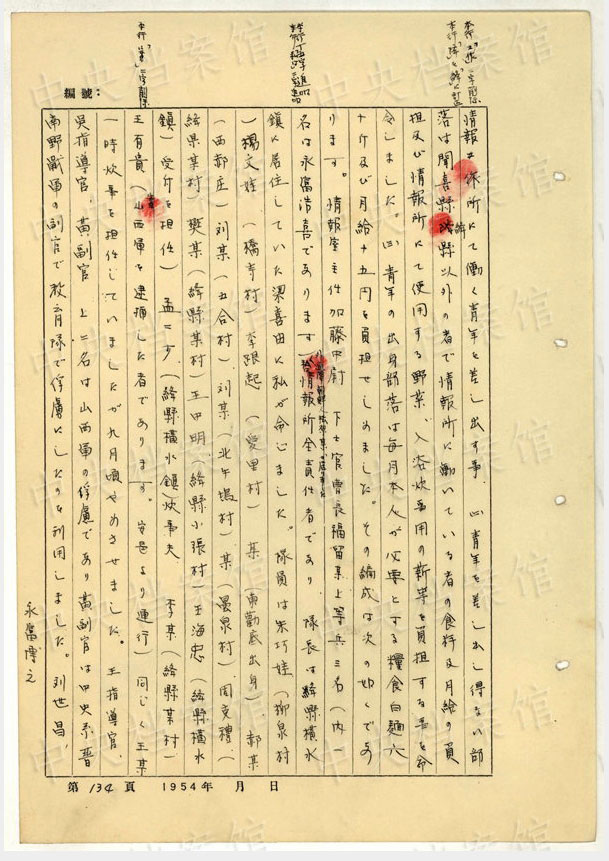 本行「張」二字懸
本行「解」ヲ「絳」ニ訂
編號：
情報工作所にて働く青年を差し出す事 (二)青年を差し出し得ない部
落は聞喜縣絳縣以外の者で情報所に働いている者の食料及月給の負
担及び情報所にて使用する野菜、入浴炊事用の薪等を負担する事を命
令しました。(三)青年の出身部落は毎月本人が必要とする糧食白麺六
十斤及び月給十五円を負担せしめました。その編成は次の如くであ
ります。 情報室主任加藤中尉 下士官曹長福留某上等兵三名（内一
名は永富浩喜であります）情報所全責任者であり 隊長は絳縣横水
鎮に居住していた梁喜田に私が命じました。隊員は朱巧娃（柳泉村
）楊文娃（橋寺村）李跟起（愛里村） 某（東勤底出身） 郝某
（西郝庄） 刘某（五合村） 刘某（北午塢村） 某（晏泉村） 周文禮（
絳県某村） 樊某（絳縣某村） 王甲明（絳縣小張村） 王海忠（絳縣横水
鎮）受付を担任） 孟二少（絳縣横水鎮）炊事夫 李某（絳縣某村）
王有貴（山西軍を逮捕した者であります。安邑より連行） 同じく王某
一時炊事を担任していましたが九月頃やめさせました。 王指導官、
吳指導官、高副官 上二名は山西軍の俘虜であり高副官は中央系晋
南野戰軍の副官で教育隊で俘虜にしたのを利用しました。刘世昌、
永富博之
第 134 頁 1954年 月 日
中央档案馆